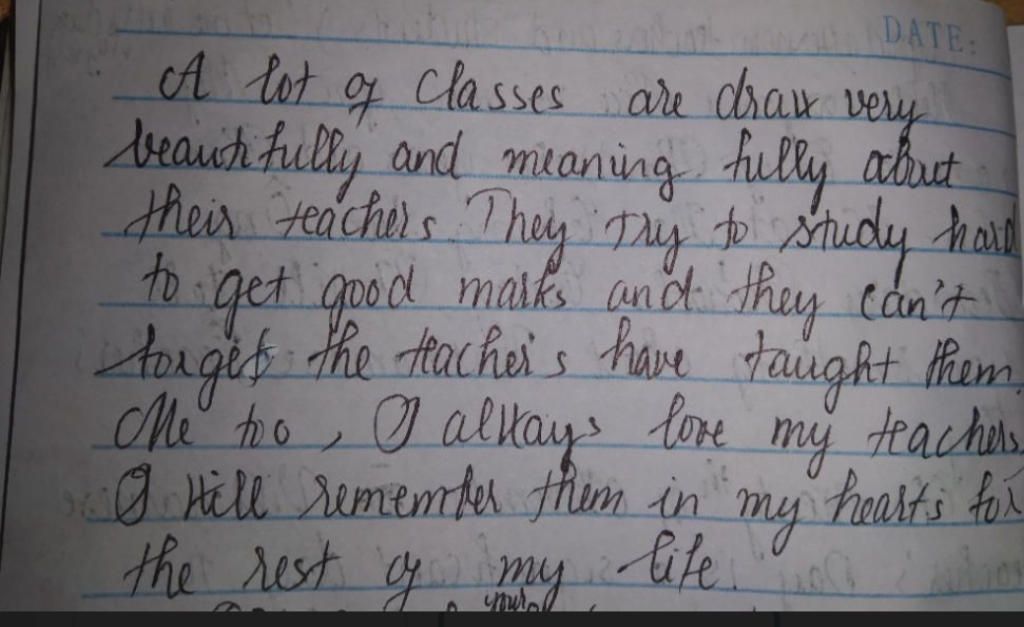 DATE:
A lot of classes are draw very
beautifully and meaning fully about
their teachers. They try to study hard
to get good marks and they can't
forget the teacher's have taught them.
Me too, I always love my teachers
I will remember them in my hearts for
the rest of my life.
your